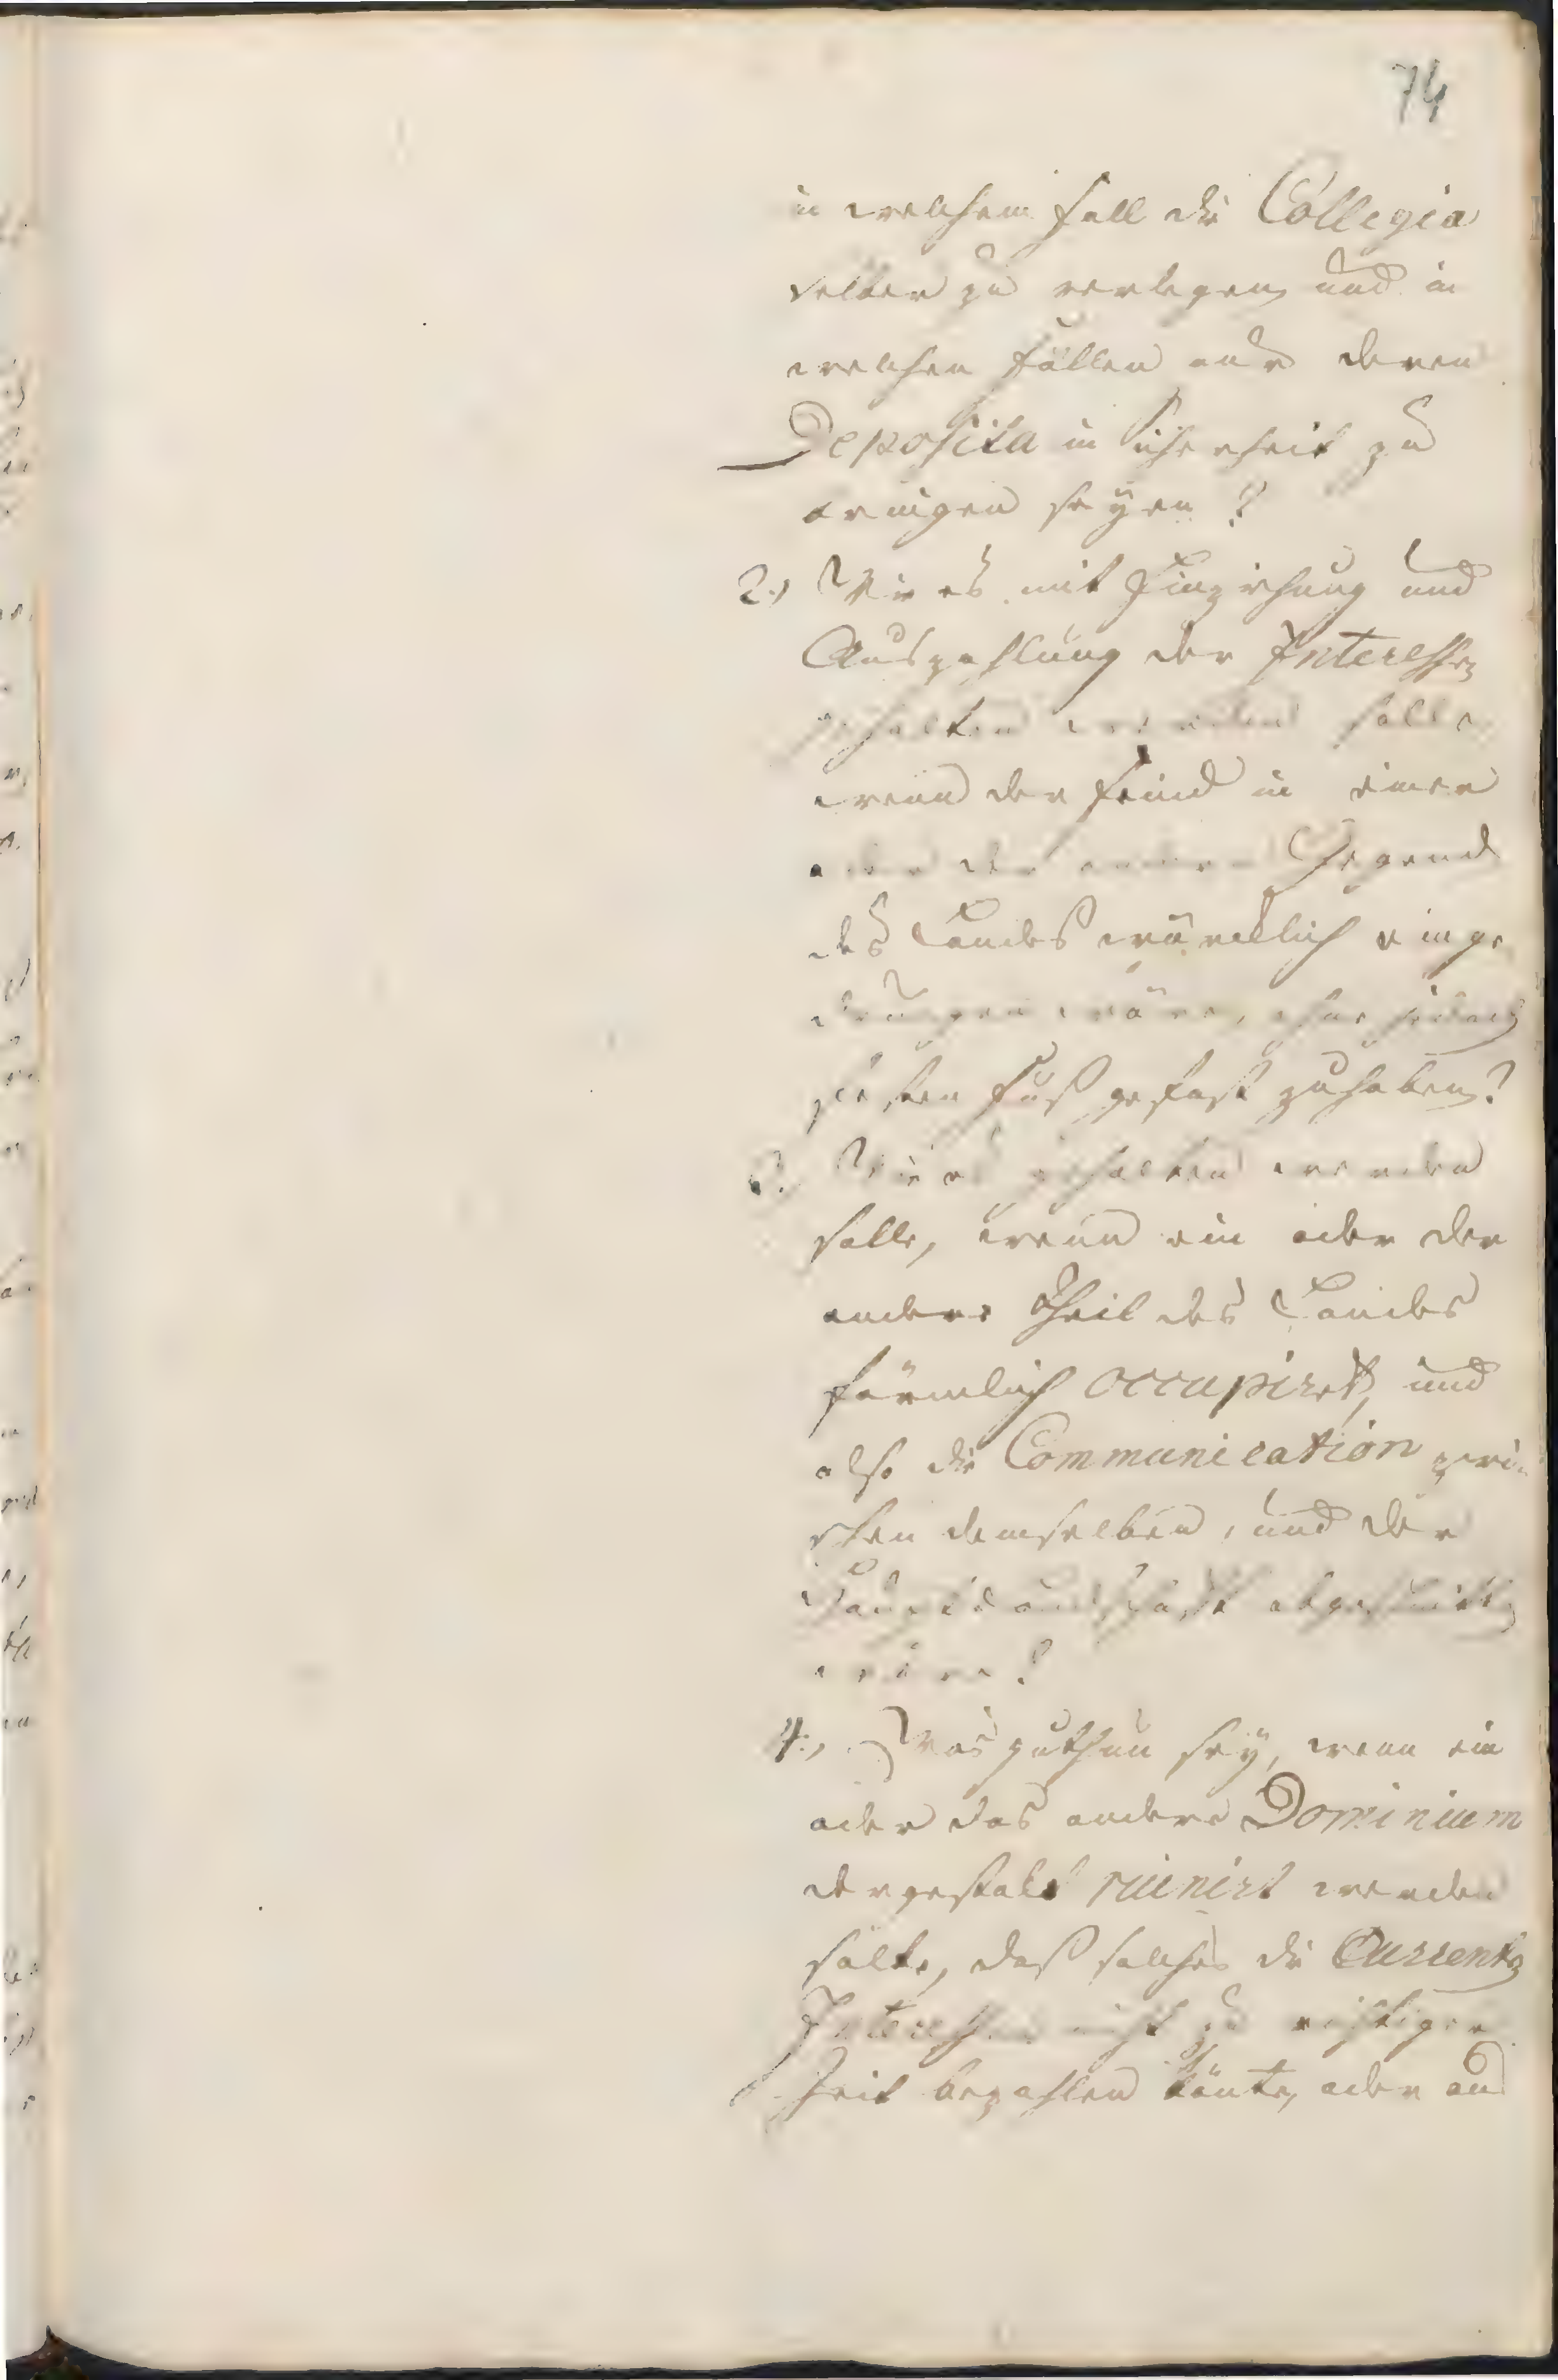 74
in welchem fall die Collegia
selber zu verlegen und in
welchen fällen nur deren
Deposita in Sicherheit zu
bringen seÿen?
2., Wie es mit Einziehung und
Auszahlung der Interessen
gehalten werden solle
wenn der feind in einer
oder der andern Gegend
des Landes würcklich einge
drungen wäre, ohne jedoch
festen fuß gefast zuhaben?
3. Wie es gehalten werden
solle, wenn ein oder der
andere Theil des Landes
förmlich occupiret, und
also die Communication zwi-
schen demselben, und der
abgeschnitten
wäre?
4., Was zuthun seÿ, wenn ein
oder das andere Dominium
dergestalt ruinirt werden
solte, daß solches die Currenten
Interessen nicht zu richtiger
Zeit bezahlen könte, oder an